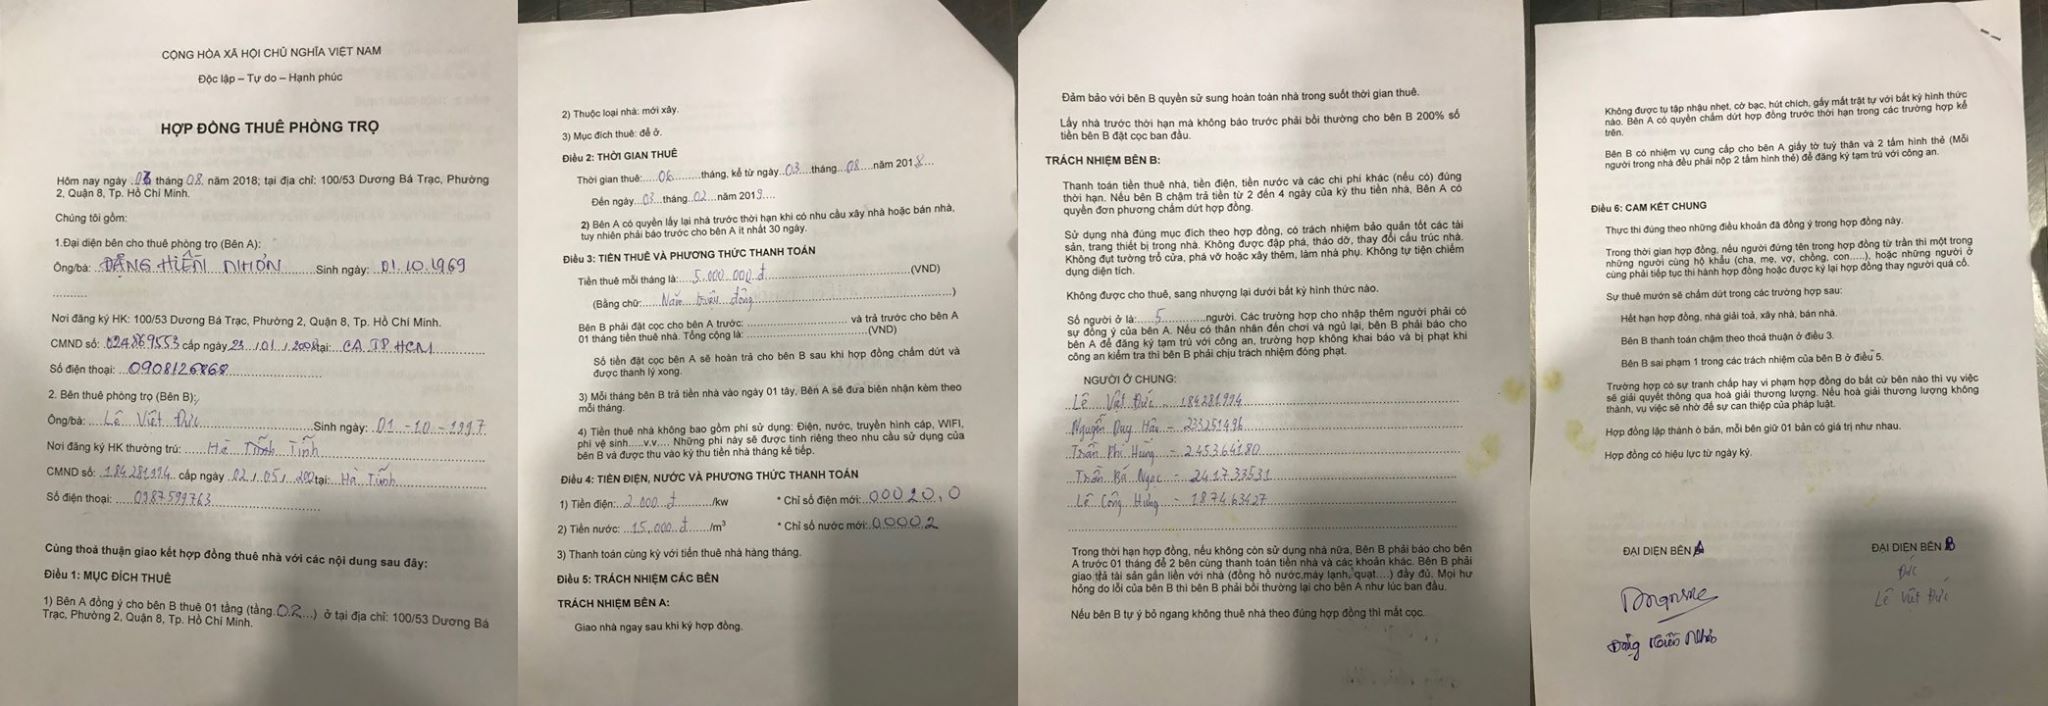 CỘNG HÒA XÃ HỘI CHỦ NGHĨA VIỆT NAM
Độc lập – Tự do – Hạnh phúc
HỢP ĐỒNG THUÊ PHÒNG TRỌ
Hôm nay ngày 03 tháng 08. năm 2018; tại địa chỉ: 100/53 Dương Bá Trạc, Phường
2, Quận 8, Tp. Hồ Chí Minh.
Chúng tôi gồm:
1.Đại diện bên cho thuê phòng trọ (Bên A):
Ông/bà: ĐẶNG HIỀN NHƠN Sinh ngày: 01.10.1969
Nơi đăng ký HK: 100/53 Dương Bá Trạc, Phường 2, Quận 8, Tp. Hồ Chí Minh.
CMND số: 024869553 cấp ngày 23 / 01 / tại: CA TP HCM
Số điện thoại: 0908126868
2. Bên thuê phòng trọ (Bên B):
Ông/bà: Lê Viết Đức Sinh ngày: 01 -10 -1997
Nơi đăng ký HK thường trú: Hà Tĩnh
CMND số: 184281994 cấp ngày 02 / 05 / tại: Hà Tĩnh
Số điện thoại: 0987599763
Cùng thoả thuận giao kết hợp đồng thuê nhà với các nội dung sau đây:
Điều 1: MỤC ĐÍCH THUÊ
1) Bên A đồng ý cho bên B thuê 01 tầng (tầng 02...) ở tại địa chỉ: 100/53 Dương Bá
Trạc, Phường 2, Quận 8, Tp. Hồ Chí Minh.
2) Thuộc loại nhà: mới xây.
3) Mục đích thuê: để ở.
Điều 2: THỜI GIAN THUÊ
Thời gian thuê: 06 tháng, kể từ ngày 03 tháng 08 năm 2018
Đến ngày 03 tháng 02 năm 2019
2) Bên A có quyền lấy lại nhà trước thời hạn khi có nhu cầu xây nhà hoặc bán nhà,
tuy nhiên phải báo trước cho bên A ít nhất 30 ngày.
Điều 3: TIỀN THUÊ VÀ PHƯƠNG THỨC THANH TOÁN
Tiền thuê mỗi tháng là: 5.000.000 đ (VND)
(Bằng chữ: Năm triệu đồng )
Bên B phải đặt cọc cho bên A trước: và trả trước cho bên A
01 tháng tiền thuê nhà. Tổng cộng là: (VND)
Số tiền đặt cọc bên A sẽ hoàn trả cho bên B sau khi hợp đồng chấm dứt và
được thanh lý xong.
3) Mỗi tháng bên B trả tiền nhà vào ngày 01 tây, Bên A sẽ đưa biên nhận kèm theo
mỗi tháng.
4) Tiền thuê nhà không bao gồm phí sử dụng: Điện, nước, truyền hình cáp, WIFI,
phí vệ sinh....v.v.... Những phí này sẽ được tính riêng theo nhu cầu sử dụng của
bên B và được thu vào kỳ thu tiền nhà tháng kế tiếp.
Điều 4: TIỀN ĐIỆN, NƯỚC VÀ PHƯƠNG THỨC THANH TOÁN
1) Tiền điện: 2.000 đ /kw * Chỉ số điện mới: 00020,0
2) Tiền nước: 15.000 đ /m³ * Chỉ số nước mới: 00002
3) Thanh toán cùng kỳ với tiền thuê nhà hàng tháng.
Điều 5: TRÁCH NHIỆM CÁC BÊN
TRÁCH NHIỆM BÊN A:
Giao nhà ngay sau khi ký hợp đồng.
Đảm bảo với bên B quyền sử sung hoàn toàn nhà trong suốt thời gian thuê.
Lấy nhà trước thời hạn mà không báo trước phải bồi thường cho bên B 200% số
tiền bên B đặt cọc ban đầu.
TRÁCH NHIỆM BÊN B:
Thanh toán tiền thuê nhà, tiền điện, tiền nước và các chi phí khác (nếu có) đúng
thời hạn. Nếu bên B chậm trả tiền từ 2 đến 4 ngày của kỳ thu tiền nhà, Bên A có
quyền đơn phương chấm dứt hợp đồng.
Sử dụng nhà đúng mục đích theo hợp đồng, có trách nhiệm bảo quản tốt các tài
sản, trang thiết bị trong nhà. Không được đập phá, tháo dỡ, thay đổi cấu trúc nhà.
Không đụt tường trổ cửa, phá vỡ hoặc xây thêm, làm nhà phụ. Không tự tiện chiếm
dụng diện tích.
Không được cho thuê, sang nhượng lại dưới bất kỳ hình thức nào.
Số người ở là: 5 người. Các trường hợp cho nhập thêm người phải có
sự đồng ý của bên A. Nếu có thân nhân đến chơi và ngủ lại, bên B phải báo cho
bên A để đăng ký tạm trú với công an, trường hợp không khai báo và bị phạt khi
công an kiểm tra thì bên B phải chịu trách nhiệm đóng phạt.
NGƯỜI Ở CHUNG:
Lê Viết Đức - 184281994
Nguyễn Duy - 233251496
Trần Phi Hùng - 245364180
Trần Bá Ngọc - 241733531
Lê Công Hưng - 187463427
Trong thời hạn hợp đồng, nếu không còn sử dụng nhà nữa, Bên B phải báo cho bên
A trước 01 tháng để 2 bên cùng thanh toán tiền nhà và các khoản khác. Bên B phải
giao trả tài sản gắn liền với nhà (đồng hồ nước,máy lạnh, quạt....) đầy đủ. Mọi hư
hỏng do lỗi của bên B thì bên B phải bồi thường lại cho bên A như lúc ban đầu.
Nếu bên B tự ý bỏ ngang không thuê nhà theo đúng hợp đồng thì mất cọc.
Không được tụ tập nhậu nhẹt, cờ bạc, hút chích, gầy mất trật tự với bất kỳ hình thức
nào. Bên A có quyền chấm dứt hợp đồng trước thời hạn trong các trường hợp kể
trên.
Bên B có nhiệm vụ cung cấp cho bên A giấy tờ tuỳ thân và 2 tấm hình thẻ (Mỗi
người trong nhà đều phải nộp 2 tấm hình thẻ) để đăng ký tạm trú với công an.
Điều 6: CAM KẾT CHUNG
Thực thi đúng theo những điều khoản đã đồng ý trong hợp đồng này.
Trong thời gian hợp đồng, nếu người đứng tên trong hợp đồng từ trần thì một trong
những người cùng hộ khẩu (cha, mẹ, vợ, chồng, con.....), hoặc những người ở
cùng phải tiếp tục thi hành hợp đồng hoặc được ký lại hợp đồng thay người quá cố.
Sự thuê mướn sẽ chấm dứt trong các trường hợp sau:
Hết hạn hợp đồng, nhà giải toả, xây nhà, bán nhà.
Bên B thanh toán chậm theo thoả thuận ở điều 3.
Bên B sai phạm 1 trong các trách nhiệm của bên B ở điều 5.
Trường hợp có sự tranh chấp hay vi phạm hợp đồng do bất cứ bên nào thì vụ việc
sẽ giải quyết thông qua hoà giải thương lượng. Nếu hoà giải thương lượng không
thành, vụ việc sẽ nhờ để sự can thiệp của pháp luật.
Hợp đồng lập thành ò bản, mỗi bên giữ 01 bản có giá trị như nhau.
Hợp đồng có hiệu lực từ ngày ký.
ĐẠI DIỆN BÊN A ĐẠI DIỆN BÊN B
Đức
Lê Viết Đức
Đặng Hiền Nhơn